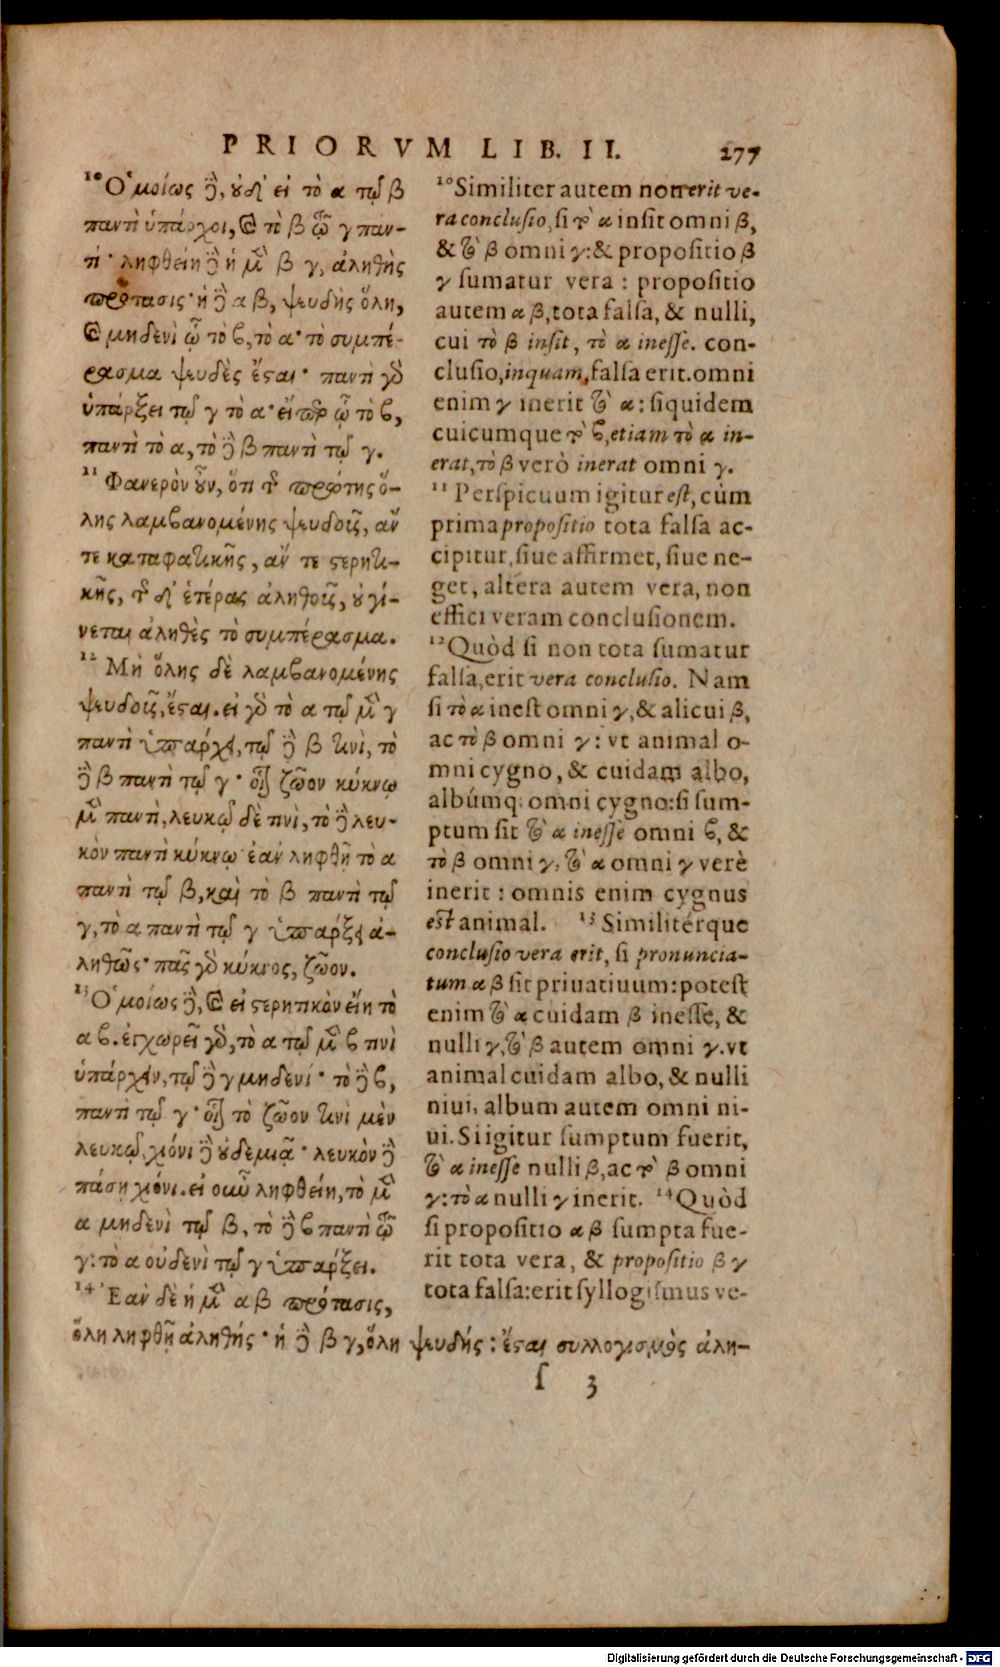 PRIORVM LIB. II. 277
¹⁰Ὁμοίως δὲ, οὐδ' εἰ τὸ α τῷ β
παντὶ ὑπάρχοι, καὶ τὸ β τῷ γ παν-
τί· ληφθείη δὲ ἡ μὲν β γ, ἀληθὴς
πρότασις· ἡ δὲ α β, ψευδὴς ὅλη,
καὶ μηδενὶ ᾧ τὸ β, τὸ α· τὸ συμπέ-
ρασμα ψευδὲς ἔσται· παντὶ γὰρ
ὑπάρξει τῷ γ τὸ α· εἴπερ ᾧ τὸ β,
παντὶ τὸ α, τὸ δὲ β παντὶ τῷ γ.
¹¹ Φανερὸν οὖν, ὅτι τῆς πρώτης ὅ-
λης λαμβανομένης ψευδοῦς, ἄν
τε καταφατικῆς, ἄν τε στερητι-
κῆς, τῆς δ' ἑτέρας ἀληθοῦς, οὐ γί-
νεται ἀληθὲς τὸ συμπέρασμα.
¹² Μὴ ὅλης δὲ λαμβανομένης
ψευδοῦς, ἔσται. εἰ γὰρ τὸ α τῷ μὲν γ
παντὶ ὑπάρχει, τῷ δὲ β τινὶ, τὸ
δὲ β παντὶ τῷ γ· οἷον ζῶον κύκνῳ
μὲν παντὶ, λευκῷ δὲ τινὶ, τὸ δὲ λευ-
κὸν παντὶ κύκνῳ· ἐὰν ληφθῇ τὸ α
παντὶ τῷ β, καὶ τὸ β παντὶ τῷ
γ, τὸ α παντὶ τῷ γ ὑπάρξει ἀ-
ληθῶς· πᾶς γὰρ κύκνος, ζῶον.
¹³ Ὁμοίως δὲ, καὶ εἰ στερητικὸν εἴη τὸ
α β. ἐγχωρεῖ γὰρ, τὸ α τῷ μὲν β τινὶ
ὑπάρχειν, τῷ δὲ γ μηδενί· τὸ δὲ β,
παντὶ τῷ γ· οἷον τὸ ζῶον τινὶ μὲν
λευκῷ, χιόνι δὲ οὐδεμιᾷ· λευκὸν δὲ
πάσῃ χιόνι. εἰ οὖν ληφθείη, τὸ μὲν
α μηδενὶ τῷ β, τὸ δὲ β παντὶ τῷ
γ: τὸ α οὐδενὶ τῷ γ ὑπάρξει.
¹⁴ Ἐὰν δὲ ἡ μὲν α β πρότασις,
ὅλη ληφθῇ ἀληθής· ἡ δὲ β γ, ὅλη ψευδής: ἔσται συλλογισμὸς ἀλη-
¹⁰Similiter autem non erit ve-
ra conclusio, si τὸ α insit omni β,
& τὸ β omni γ: & propositio β
γ sumatur vera : propositio
autem α β, tota falsa, & nulli,
cui τὸ β insit, τὸ α inesse. con-
clusio, inquam, falsa erit. omni
enim γ inerit τὸ α: siquidem
cuicumque τὸ β, etiam τὸ α in-
erat, τὸ β verò inerat omni γ.
¹¹ Perspicuum igitur est, cùm
prima propositio tota falsa ac-
cipitur, siue affirmet, siue ne-
get, altera autem vera, non
effici veram conclusionem.
¹²Quòd si non tota sumatur
falsa, erit vera conclusio. Nam
si τὸ α inest omni γ, & alicui β,
ac τὸ β omni γ: vt animal o-
mni cygno, & cuidam albo,
albúmq; omni cygno: si sum-
ptum sit τὸ α inesse omni β, &
τὸ β omni γ, τὸ α omni γ verè
inerit : omnis enim cygnus
est animal. ¹³ Similitérque
conclusio vera erit, si pronuncia-
tum α β sit priuatiuum: potest
enim τὸ α cuidam β inesse, &
nulli γ, τὸ β autem omni γ. vt
animal cuidam albo, & nulli
niui, album autem omni ni-
ui. Si igitur sumptum fuerit,
τὸ α inesse nulli β, ac τὸ β omni
γ: τὸ α nulli γ inerit. ¹⁴Quòd
si propositio α β sumpta fue-
rit tota vera, & propositio β γ
tota falsa: erit syllogismus ve-
s 3
Digitalisierung gefördert durch die Deutsche Forschungsgemeinschaft - DFG